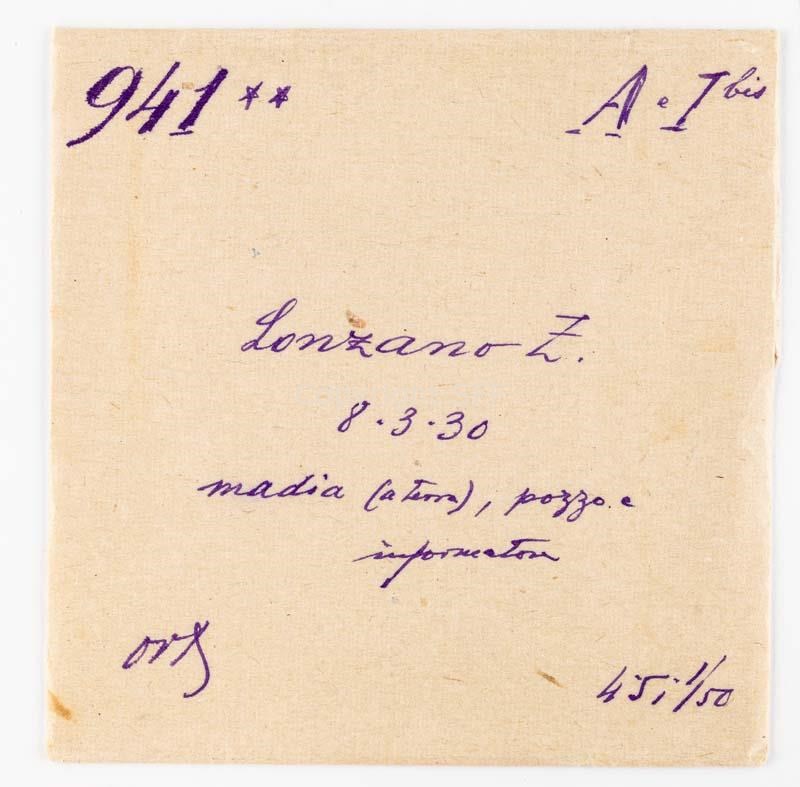 941 ** A e I bis
Lonzano Z.
8.3.30
madia (a terra), pozzo e
informatore
ort
45i 1/50